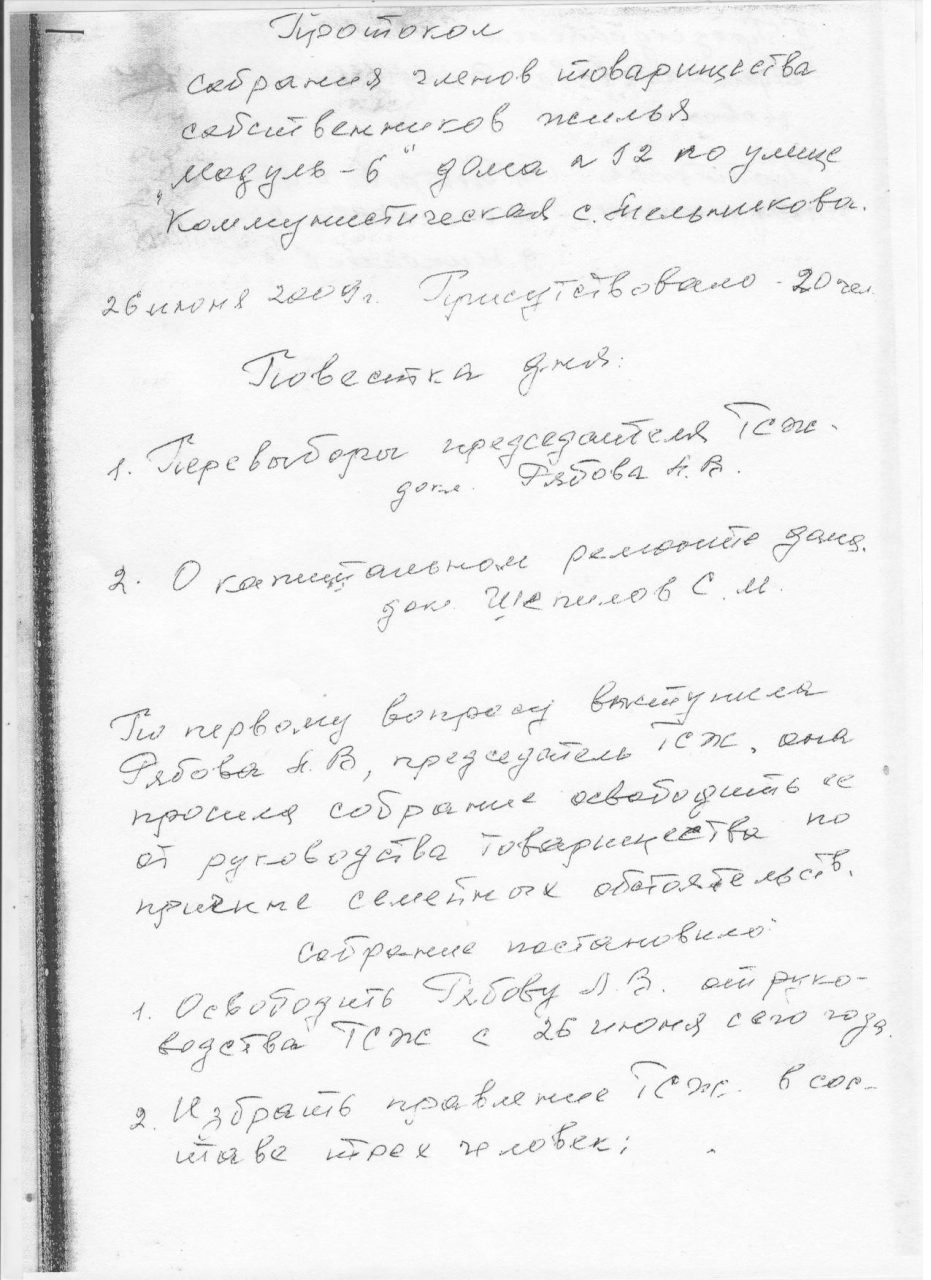 Протокол
собрания членов товарищества
собственников жилья
„Модуль-6" дома n 12 по улице
Коммунистическая с. Мельникова.
26 июня 2009г. Присутствовало - 20 чел.
Повестка дня:
1. Перевыборы председателя ТСЖ.
док. Рябова Л.В.
2. О капитальном ремонте дома.
док. Щепилов С.М.
По первому вопросу выступила
Рябова Л.В, председатель ТСЖ, она
просила собрание освободить ее
от руководства товарищества по
причине семейных обстоятельств.
собрание постановило:
1. Освободить Рябову Л.В. от руко-
водства ТСЖ с 26 июня сего года.
2. Избрать правление ТСЖ. в сос-
таве трех человек: